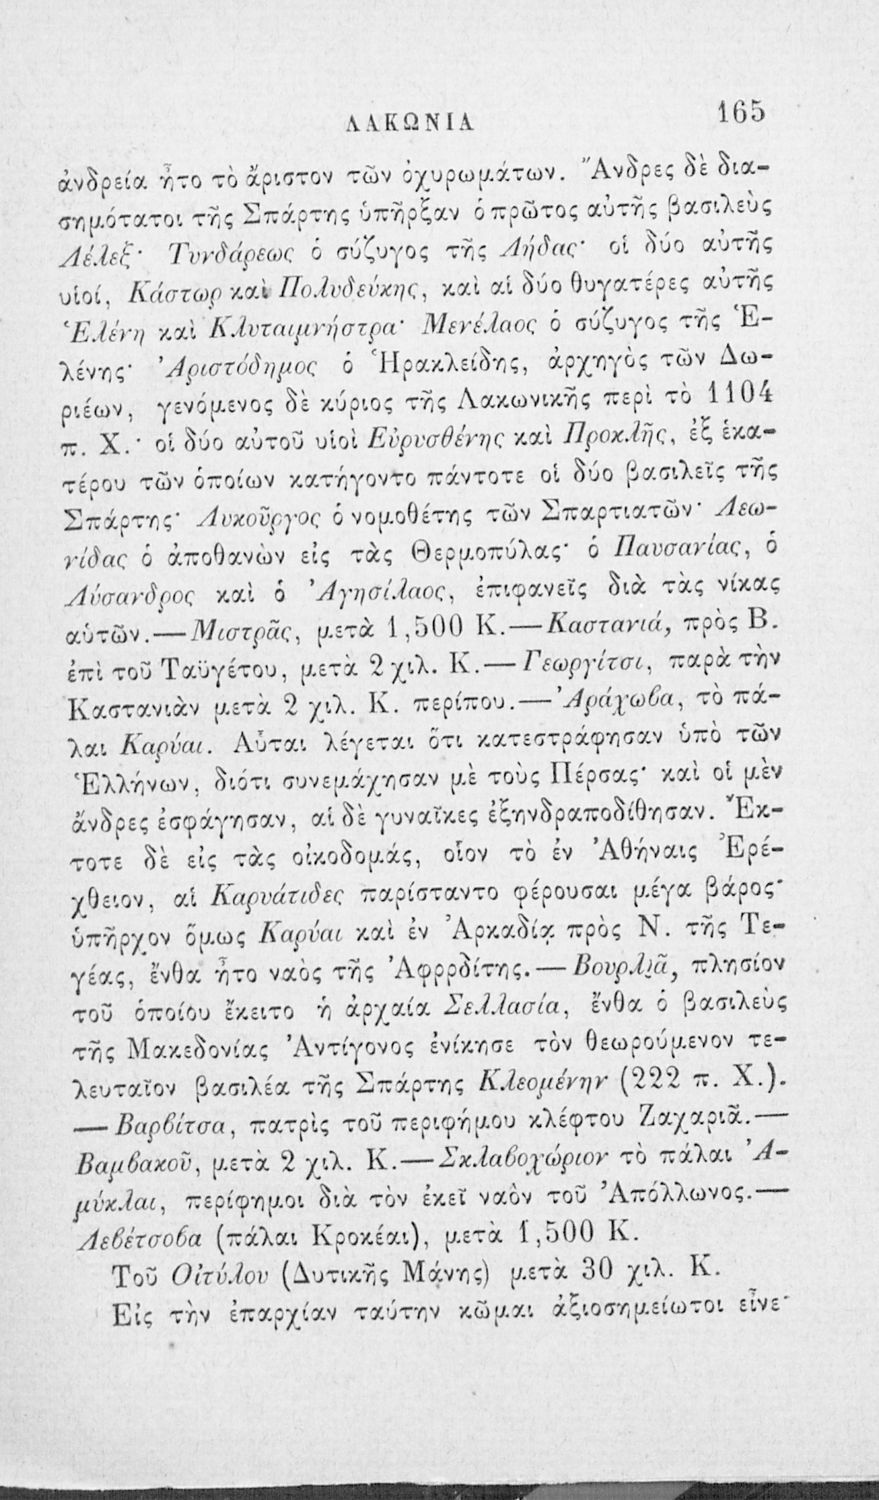 ΛΑΚΩΝΙΑ 165
ἀνδρεία ἦτο τὸ ἄριστον τῶν ὀχυρωμάτων. Ἄνδρες δὲ δια-
σημότατοι τῆς Σπάρτης ὑπῆρξαν ὁ πρῶτος αὐτῆς βασιλεὺς
Λέλεξ· Τυνδάρεως ὁ σύζυγος τῆς Λήδας· οἱ δύο αὐτῆς
υἱοί, Κάστωρ καὶ Πολυδεύκης, καὶ αἱ δύο θυγατέρες αὐτῆς
Ἑλένη καὶ Κλυταιμνήστρα· Μενέλαος ὁ σύζυγος τῆς Ἑ-
λένης· Ἀριστόδημος ὁ Ἡρακλείδης, ἀρχηγὸς τῶν Δω-
ριέων, γενόμενος δὲ κύριος τῆς Λακωνικῆς περὶ τὸ 1104
π. Χ.· οἱ δύο αὐτοῦ υἱοὶ Εὐρυσθένης καὶ Προκλῆς, ἐξ ἑκα-
τέρου τῶν ὁποίων κατήγοντο πάντοτε οἱ δύο βασιλεῖς τῆς
Σπάρτης· Λυκοῦργος ὁ νομοθέτης τῶν Σπαρτιατῶν· Λεω-
νίδας ὁ ἀποθανὼν εἰς τὰς Θερμοπύλας· ὁ Παυσανίας, ὁ
Λύσανδρος καὶ ὁ Ἀγησίλαος, ἐπιφανεῖς διὰ τὰς νίκας
αὑτῶν.—Μιστρᾶς, μετὰ 1,500 Κ.—Καστανιά, πρὸς Β.
ἐπὶ τοῦ Ταϋγέτου, μετὰ 2 χιλ. Κ.—Γεωργίτσι, παρὰ τὴν
Καστανιὰν μετὰ 2 χιλ. Κ. περίπου.—Ἀράχωβα, τὸ πά-
λαι Καρύαι. Αὗται λέγεται ὅτι κατεστράφησαν ὑπὸ τῶν
Ἑλλήνων, διότι συνεμάχησαν μὲ τοὺς Πέρσας· καὶ οἱ μὲν
ἄνδρες ἐσφάγησαν, αἱ δὲ γυναῖκες ἐξηνδραποδίθησαν. Ἔκ-
τοτε δὲ εἰς τὰς οἰκοδομάς, οἷον τὸ ἐν Ἀθήναις Ἐρέ-
χθειον, αἱ Καρυάτιδες παρίσταντο φέρουσαι μέγα βάρος·
ὑπῆρχον ὅμως Καρύαι καὶ ἐν Ἀρκαδίᾳ πρὸς Ν. τῆς Τε-
γέας, ἔνθα ἦτο ναὸς τῆς Ἀφρρδίτης.—Βουρλιᾶ, πλησίον
τοῦ ὁποίου ἔκειτο ἡ ἀρχαία Σελλασία, ἔνθα ὁ βασιλεὺς
τῆς Μακεδονίας Ἀντίγονος ἐνίκησε τὸν θεωρούμενον τε-
λευταῖον βασιλέα τῆς Σπάρτης Κλεομένην (222 π. Χ.).
—Βαρβίτσα, πατρὶς τοῦ περιφήμου κλέφτου Ζαχαριᾶ.—
Βαμβακοῦ, μετὰ 2 χιλ. Κ.—Σκλαβοχώριον τὸ πάλαι Ἀ-
μύκλαι, περίφημοι διὰ τὸν ἐκεῖ ναὸν τοῦ Ἀπόλλωνος.—
Λεβέτσοβα (πάλαι Κροκέαι), μετὰ 1,500 Κ.
Τοῦ Οἰτύλου (Δυτικῆς Μάνης) μετὰ 30 χιλ. Κ.
Εἰς τὴν ἐπαρχίαν ταύτην κῶμαι ἀξιοσημείωτοι εἶνε·